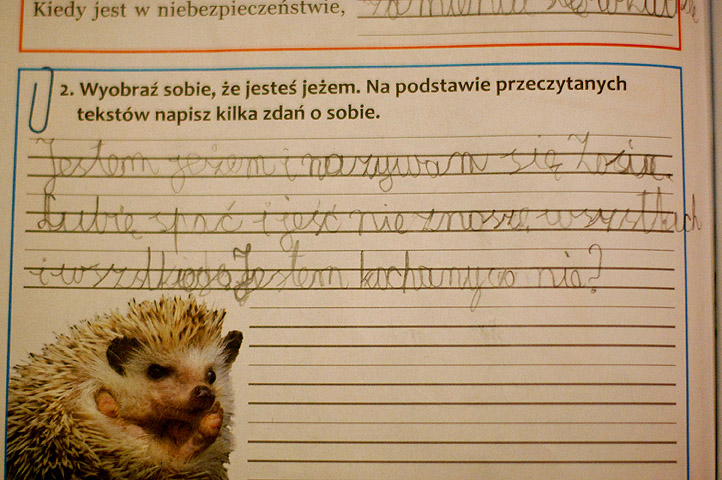 Kiedy jest w niebezpieczeństwie, zamienia się w kulkę
2. Wyobraź sobie, że jesteś jeżem. Na podstawie przeczytanych
tekstów napisz kilka zdań o sobie.
Jestem jeżem i nazywam się Zosia.
Lubię spać i jeść nie znoszę wszystkich
i wszystkiego Jestem kochany co nie?